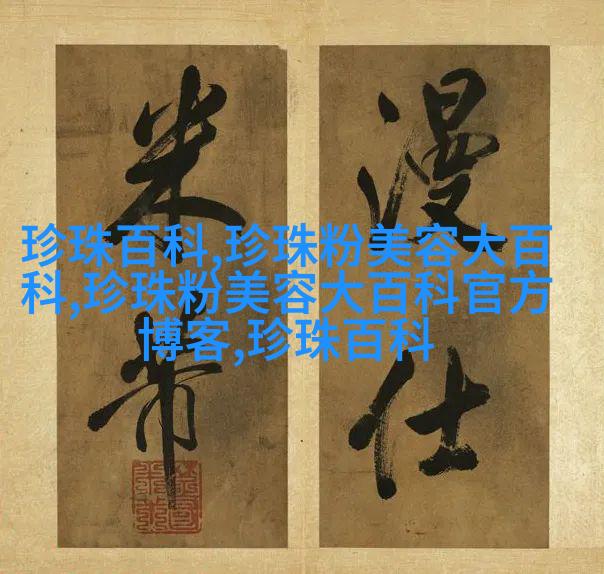 漫仕
米芾
珍珠百科,珍珠粉美容大百
科,珍珠粉美容大百科官方
博客,珍珠百科